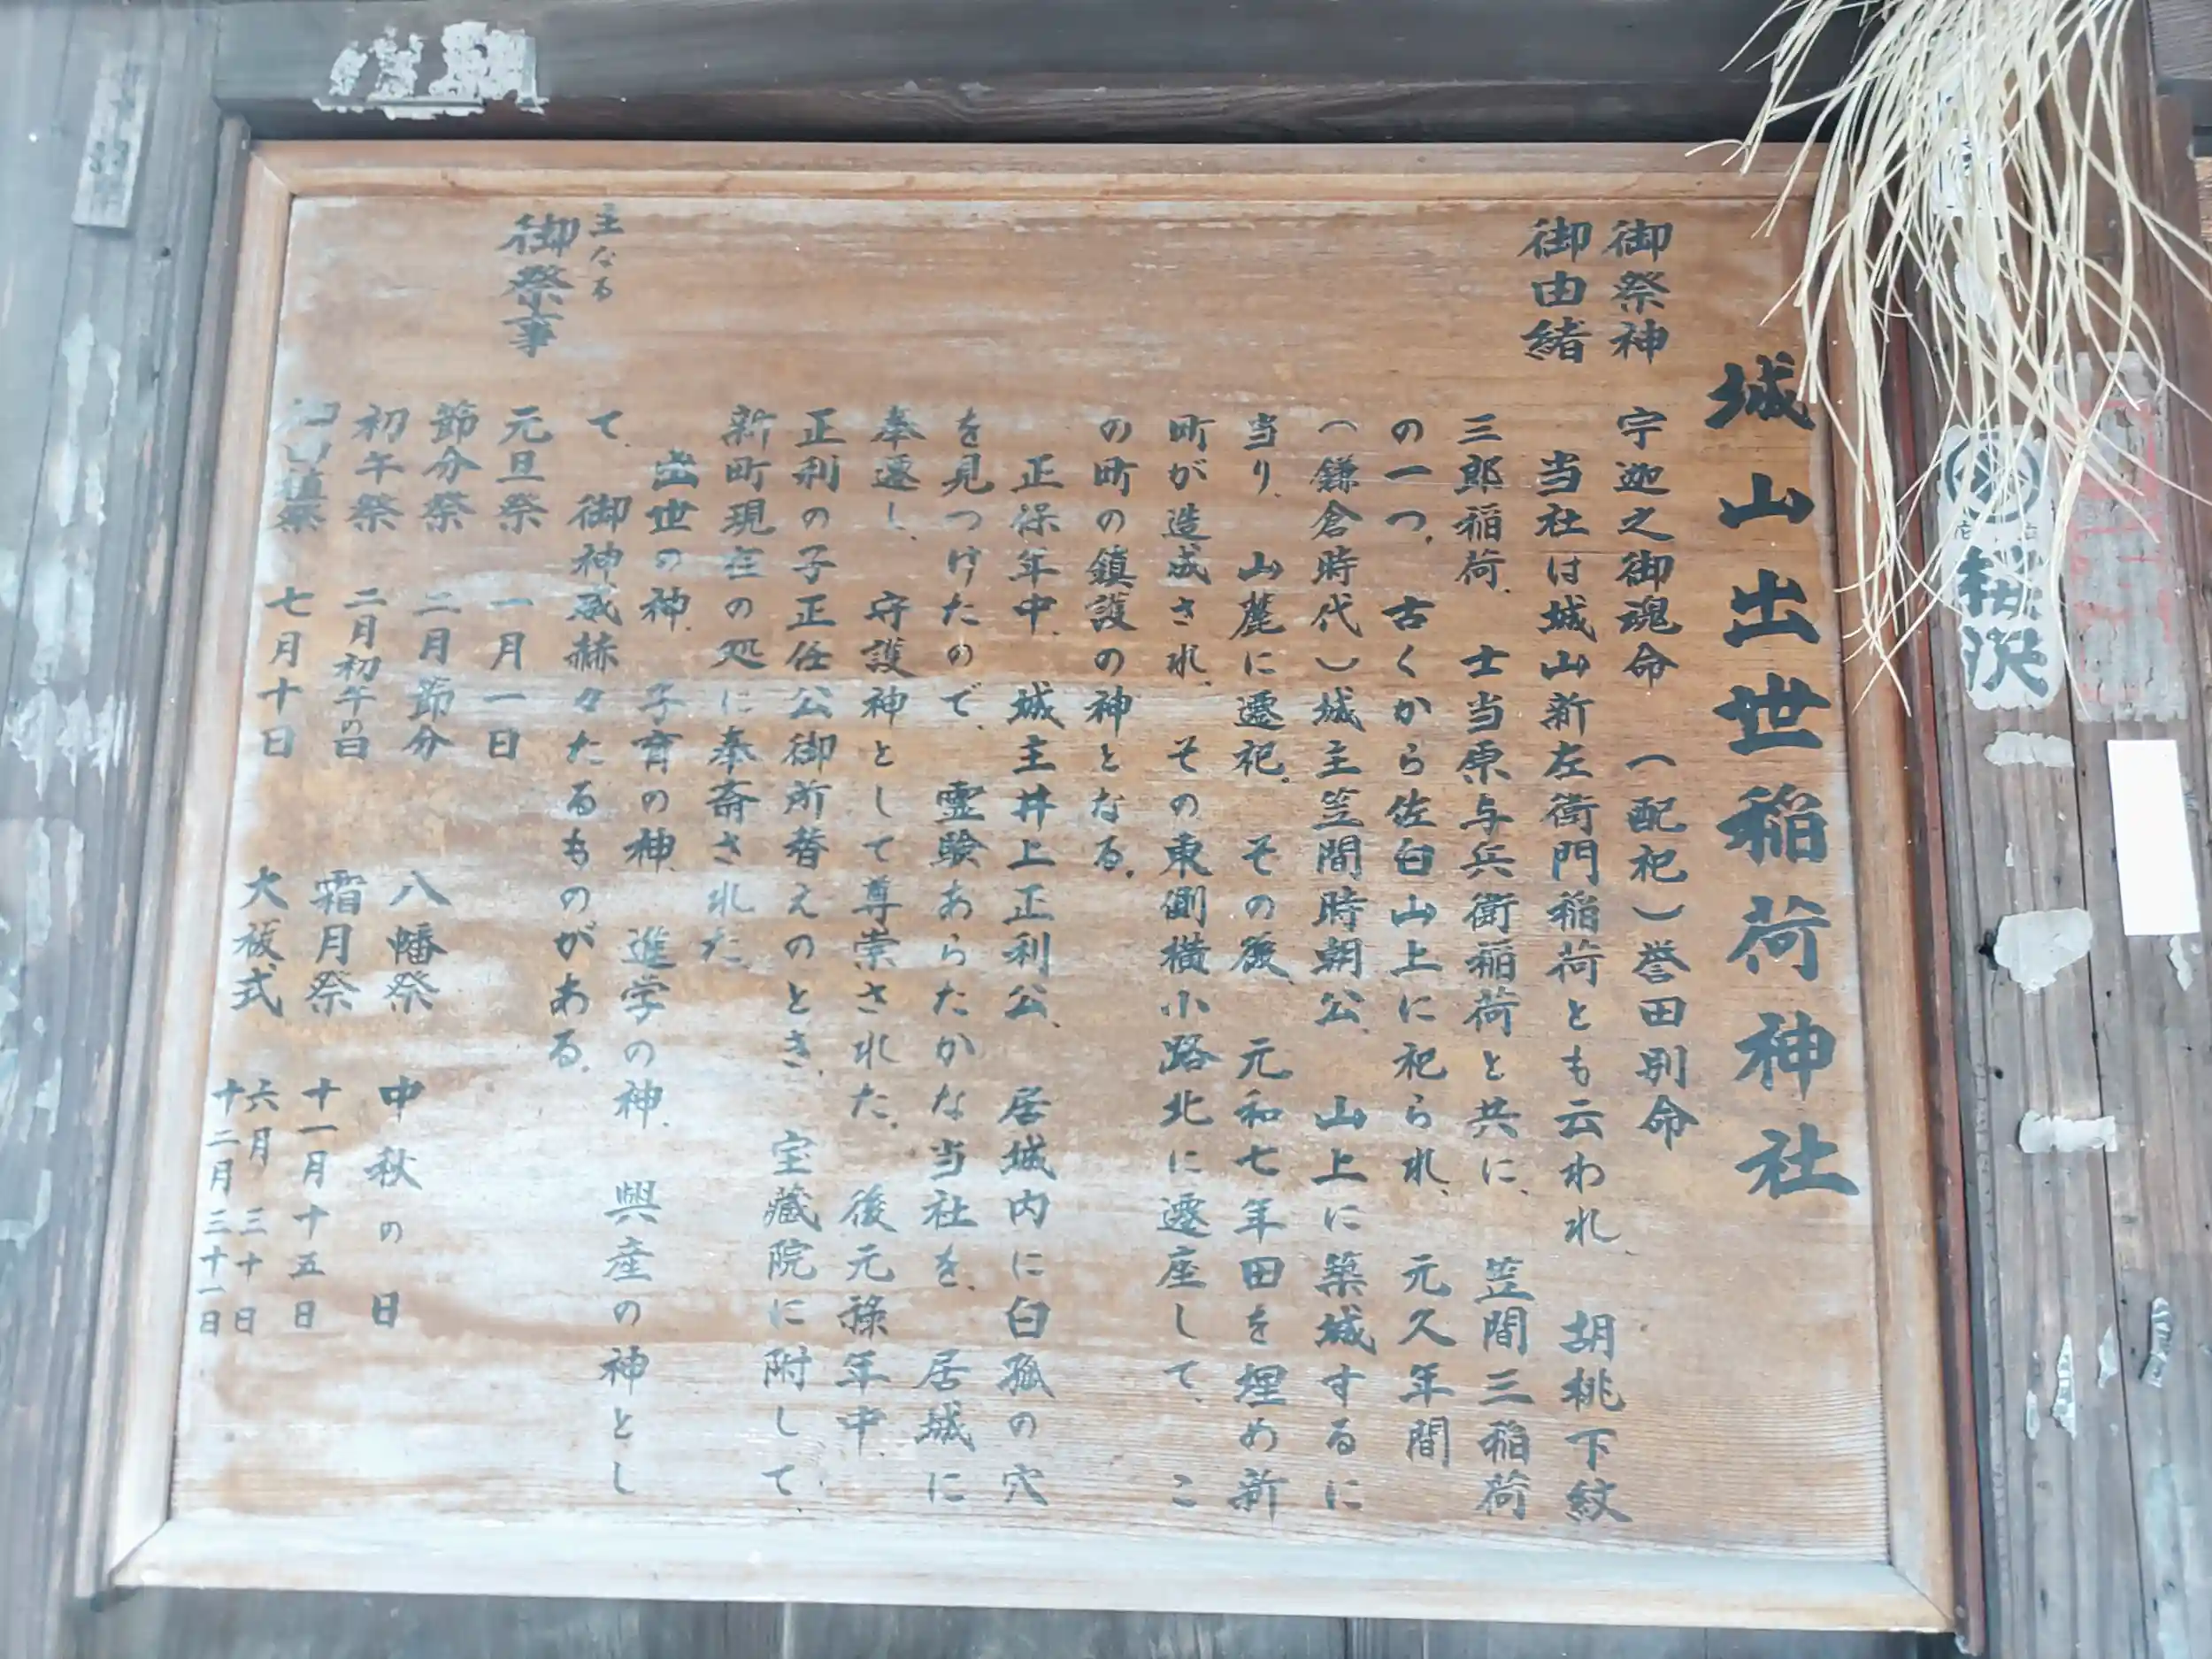 城山出世稲荷神社
御祭神　宇迦之御魂命　（配祀）誉田別命
御由緒　当社は城山新左衛門稲荷とも云われ　胡桃下紋
三郎稲荷、士当原与兵衛稲荷と共に、笠間三稲荷
の一つ。古くから佐白山上に祀られ、元久年間
（鎌倉時代）城主笠間時朝公、山上に築城するに
当り、山麓に遷祀。その後、元和七年田を埋め新
町が造成され、その東側横小路北に遷座して、こ
の町の鎮護の神となる。
正保年中、城主井上正利公、居城内に白狐の穴
を見つけたので、霊験あらたかな当社を、居城に
奉遷し、守護神として尊崇された。後元禄年中、
正利の子正任公御所替えのとき、宝蔵院に附して、
新町現在の処に奉斎された
出世の神、子育の神、進学の神、興産の神とし
て、御神威赫々たるものがある。
主なる
御祭事
元旦祭　一月一日
節分祭　二月節分
初午祭　二月初午の日
祭　七月十日
八幡祭　中秋の日
霜月祭　十一月十五日
大祓式　六月三十日
十二月三十一日